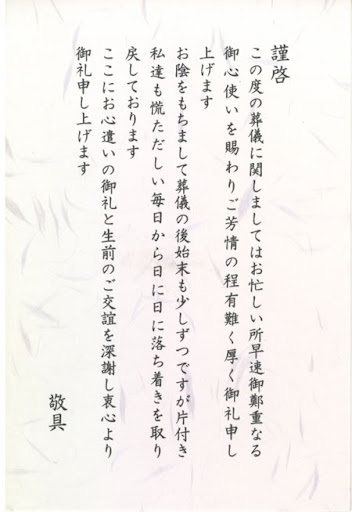 謹啓
この度の葬儀に関しましてはお忙しい所早速御鄭重なる
御心使いを賜わりご芳情の程有難く厚く御礼申し
上げます
お陰をもちまして葬儀の後始末も少しずつですが片付き
私達も慌ただしい毎日から日に日に落ち着きを取り
戻しております
ここにお心遣いの御礼と生前のご交誼を深謝し衷心より
御礼申し上げます
敬具